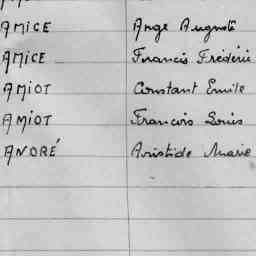 AMICE Ange Auguste
AMICE Francis Fréderic
AMIOT Constant Emile
AMIOT Francois Louis
ANDRÉ Aristide Marie